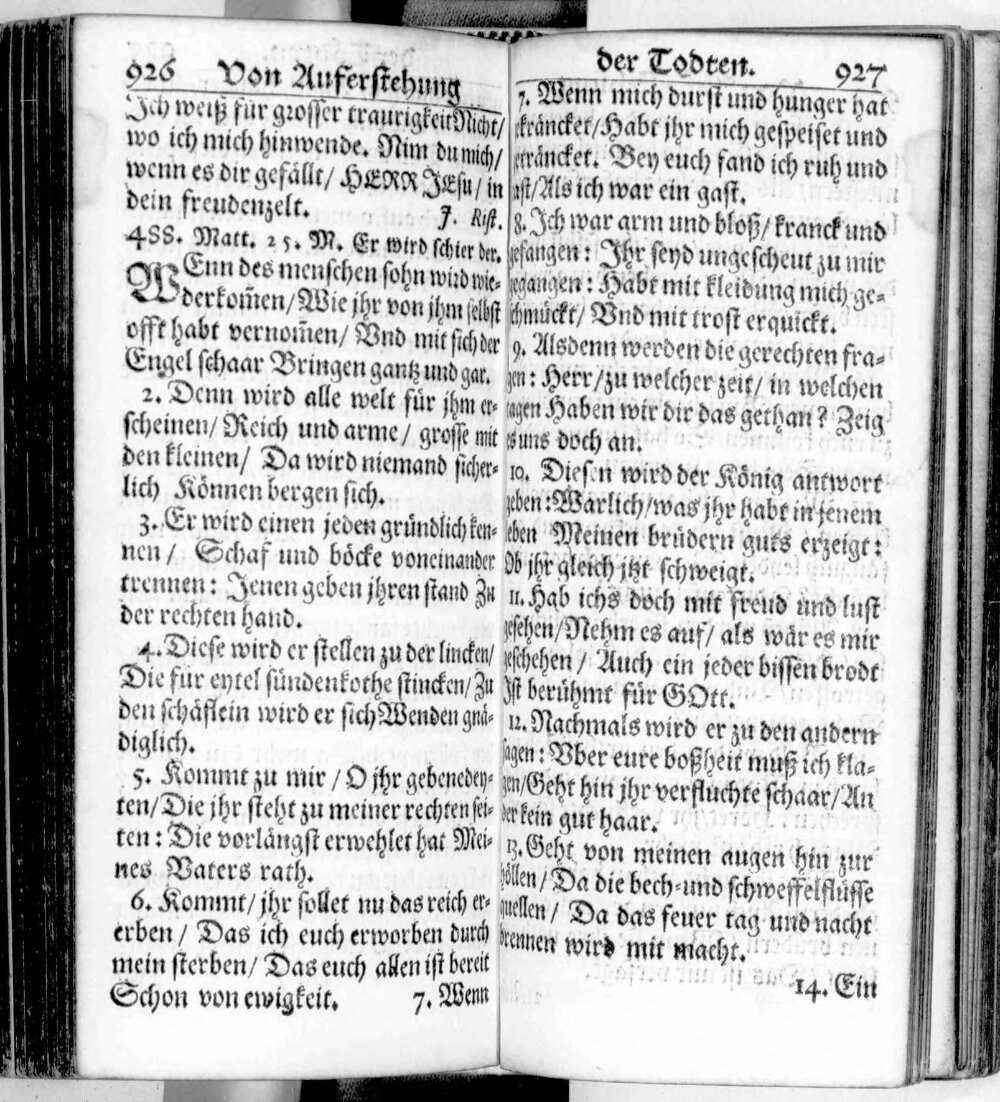 926 Von Auferstehung
Ich weiß für grosser traurigkeit Nicht/
wo ich mich hinwende. Nim du mich/
wenn es dir gefällt/ HERR JEsu/ in
dein freudenzelt. J. Rist.
488. Matt. 25. M. Er wird schier der.
WEnn des menschen sohn wird wie-
derkom̃en/ Wie jhr von jhm selbst
offt habt vernom̃en/ Vnd mit sich der
Engel schaar Bringen gantz und gar.
2. Denn wird alle welt für jhm er-
scheinen/ Reich und arme/ grosse mit
den kleinen/ Da wird niemand sicher-
lich Können bergen sich.
3. Er wird einen jeden gründlich ken-
nen/ Schaf und böcke voneinander
trennen: Jenen geben jhren stand Zu
der rechten hand.
4. Diese wird er stellen zu der lincken/
Die für eytel sündenkothe stincken/ Zu
den schäflein wird er sich Wenden gnä-
diglich.
5. Kommt zu mir/ O jhr gebenedey-
ten/ Die jhr steht zu meiner rechten sei-
ten: Die vorlängst erwehlet hat Mei-
nes Vaters rath.
6. Kommt/ jhr sollet nu das reich er-
erben/ Das ich euch erworben durch
mein sterben/ Das euch allen ist bereit
Schon von ewigkeit. 7. Wenn
der Todten. 927
7. Wenn mich durst und hunger hat
kräncket/ Habt jhr mich gespeiset und
eträncket. Bey euch fand ich ruh und
ast/ Als ich war ein gast.
8. Ich war arm und bloß/ kranck und
gefangen: Ihr seyd ungescheut zu mir
gegangen: Habt mit kleidung mich ge-
chmückt/ Vnd mit trost erquickt.
9. Alsdenn werden die gerechten fra-
gen: Herr/ zu welcher zeit/ in welchen
tagen Haben wir dir das gethan? Zeig
es uns doch an.
10. Diesen wird der König antwort
geben: Warlich/ was jhr habt in jenem
leben Meinen brüdern guts erzeigt:
Ob jhr gleich jtzt schweigt.
11. Hab ichs doch mit freud und lust
gesehen/ Nehm es auf/ als wär es mir
geschehen/ Auch ein jeder bissen brodt
Ist berühmt für GOtt.
12. Nachmals wird er zu den andern
sagen: Vber eure boßheit muß ich kla-
gen/ Geht hin jhr verfluchte schaar/ An
der kein gut haar.
13. Geht von meinen augen hin zur
höllen/ Da die bech- und schweffelflüsse
quellen/ Da das feuer tag und nacht
brennen wird mit macht.
14. Ein